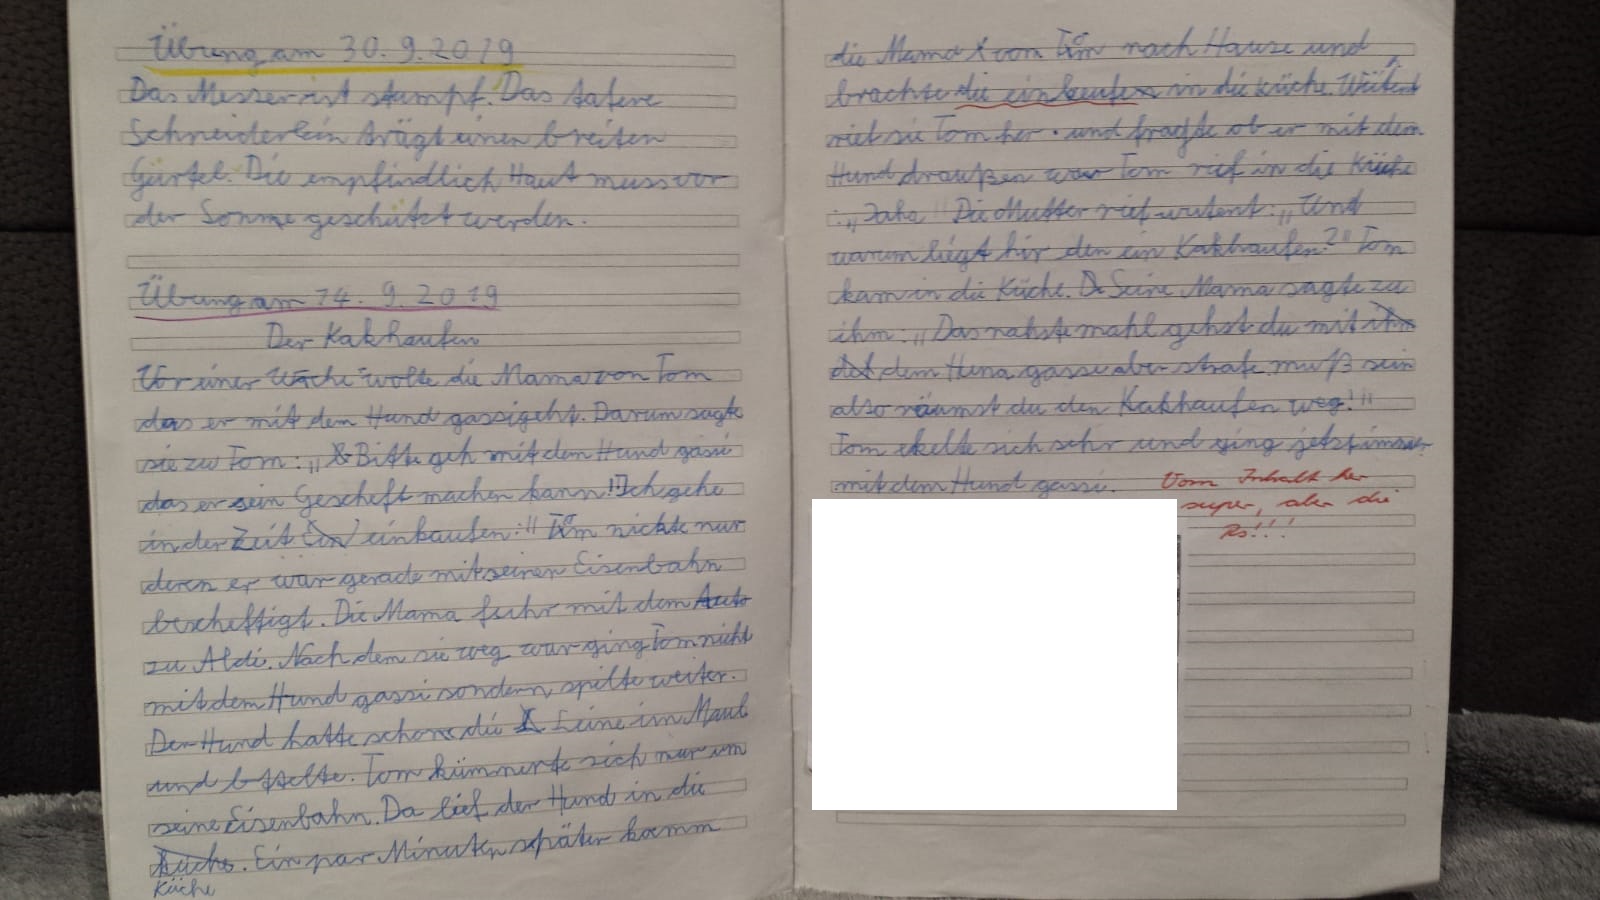 Übung am 30.9.2019
Das Messer ist stumpf. Das tafere
Schneiderlein trägt einen breiten
Gürtel. Die empfindlich Haut muss vor
der Sonne geschützt werden.
Übung am 14.9.2019
Der Kakhaufen
Vor einer Woche wolte die Mama von Tom
das er mit dem Hund gassi geht. Darum sagte
sie zu Tom: „Bitte geh mit dem Hund gassi
das er sein Gescheft machen kann! Ich gehe
in der Zeit einkaufen:" Tom nickte nur
deren er war gerade mit seiner Eisenbahn
bescheftigt. Die Mama fuhr mit dem Auto
zu Aldi. Nach dem sie weg war ging Tom nicht
mit dem Hund gassi sondern spilte weiter.
Der Hund hatte schon die Leine im Maul
und Tom kümmerte sich nur um
seine Eisenbahn. Da lief der Hund in die
Küche. Ein par Minuten später kamm
Küche
die Mama von Tom nach Hause und
brachte die einkeufe in die küche. Wütent
rief sie Tom her. und fragte ob er mit dem
Hund draußen war Tom rief in die Küche
:„Jaha" Die Mutter rief wutent: „Und
warum liegt hir den ein Kakhaufen?" Tom
kam in die Küche. Seine Mama sagte zu
ihm: „Das nahste mahl gehst du mit ihm
dem Hund gassi aber strafe muß sein
also räumst du den Kakhaufen weg!"
Tom ekelte sich sehr und ging jetzt immer
mit dem Hund gassi.
Vom Inhalt her
super, aber die
Rs!!!